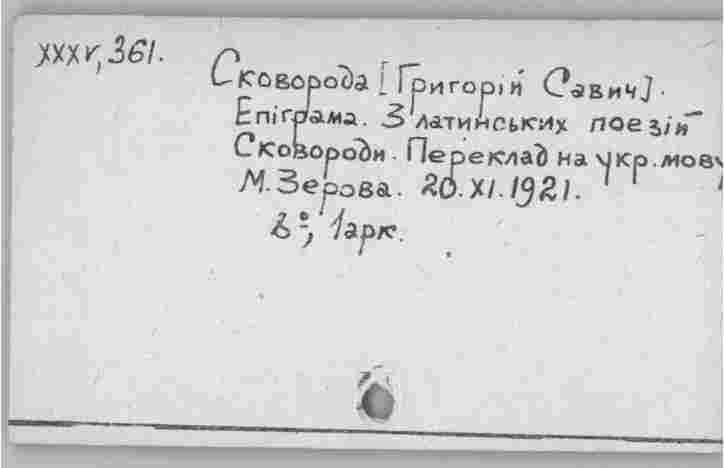 XXXV, 361.
Сковорода [Григорій Савич].
Епіграма. З латинських поезій
Сковороди. Переклад на укр. мову
М. Зерова. 20.XI.1921.
8°, 1 арк.